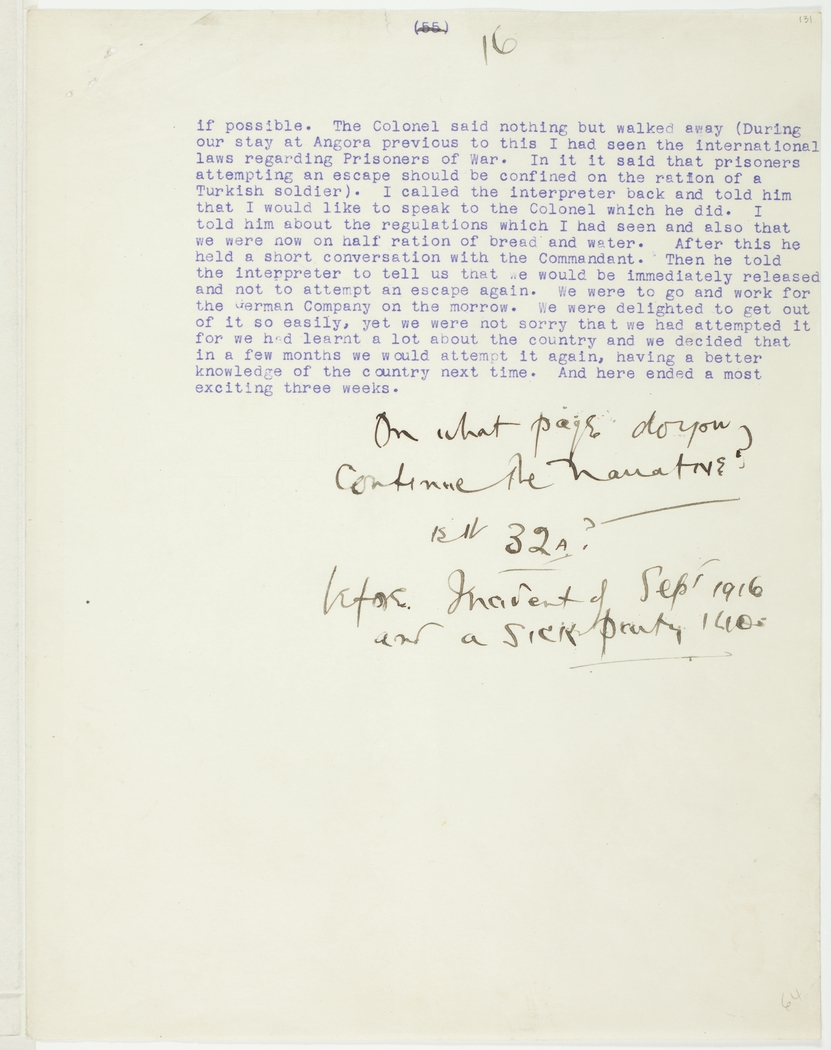 131
(55)
16
if possible.  The Colonel said nothing but walked away (During
our stay at Angora previous to this I had seen the international
laws regarding Prisoners of War.  In it it said that prisoners
attempting an escape should be confined on the ration of a
Turkish soldier).  I called the interpreter back and told him
that I would like to speak to the Colonel which he did.  I
told him about the regulations which I had seen and also that
we were now on half ration of bread and water.   After this he
held a short conversation with the Commandant.  Then he told
the interpreter to tell us that we would be immediately released
and not to attempt an escape again.  We were to go and work for
the German Company on the morrow.  We were delighted to get out
of it so easily, yet we were not sorry that we had attempted it
for we had learnt a lot about the country and we decided that
in a few months we would attempt it again, having a better
knowledge of the country next time.  And here ended a most
exciting three weeks.
On what page do you
Continue the narrative?
is it 32A?
before Incident of Sept 1916
and a Sick party 140